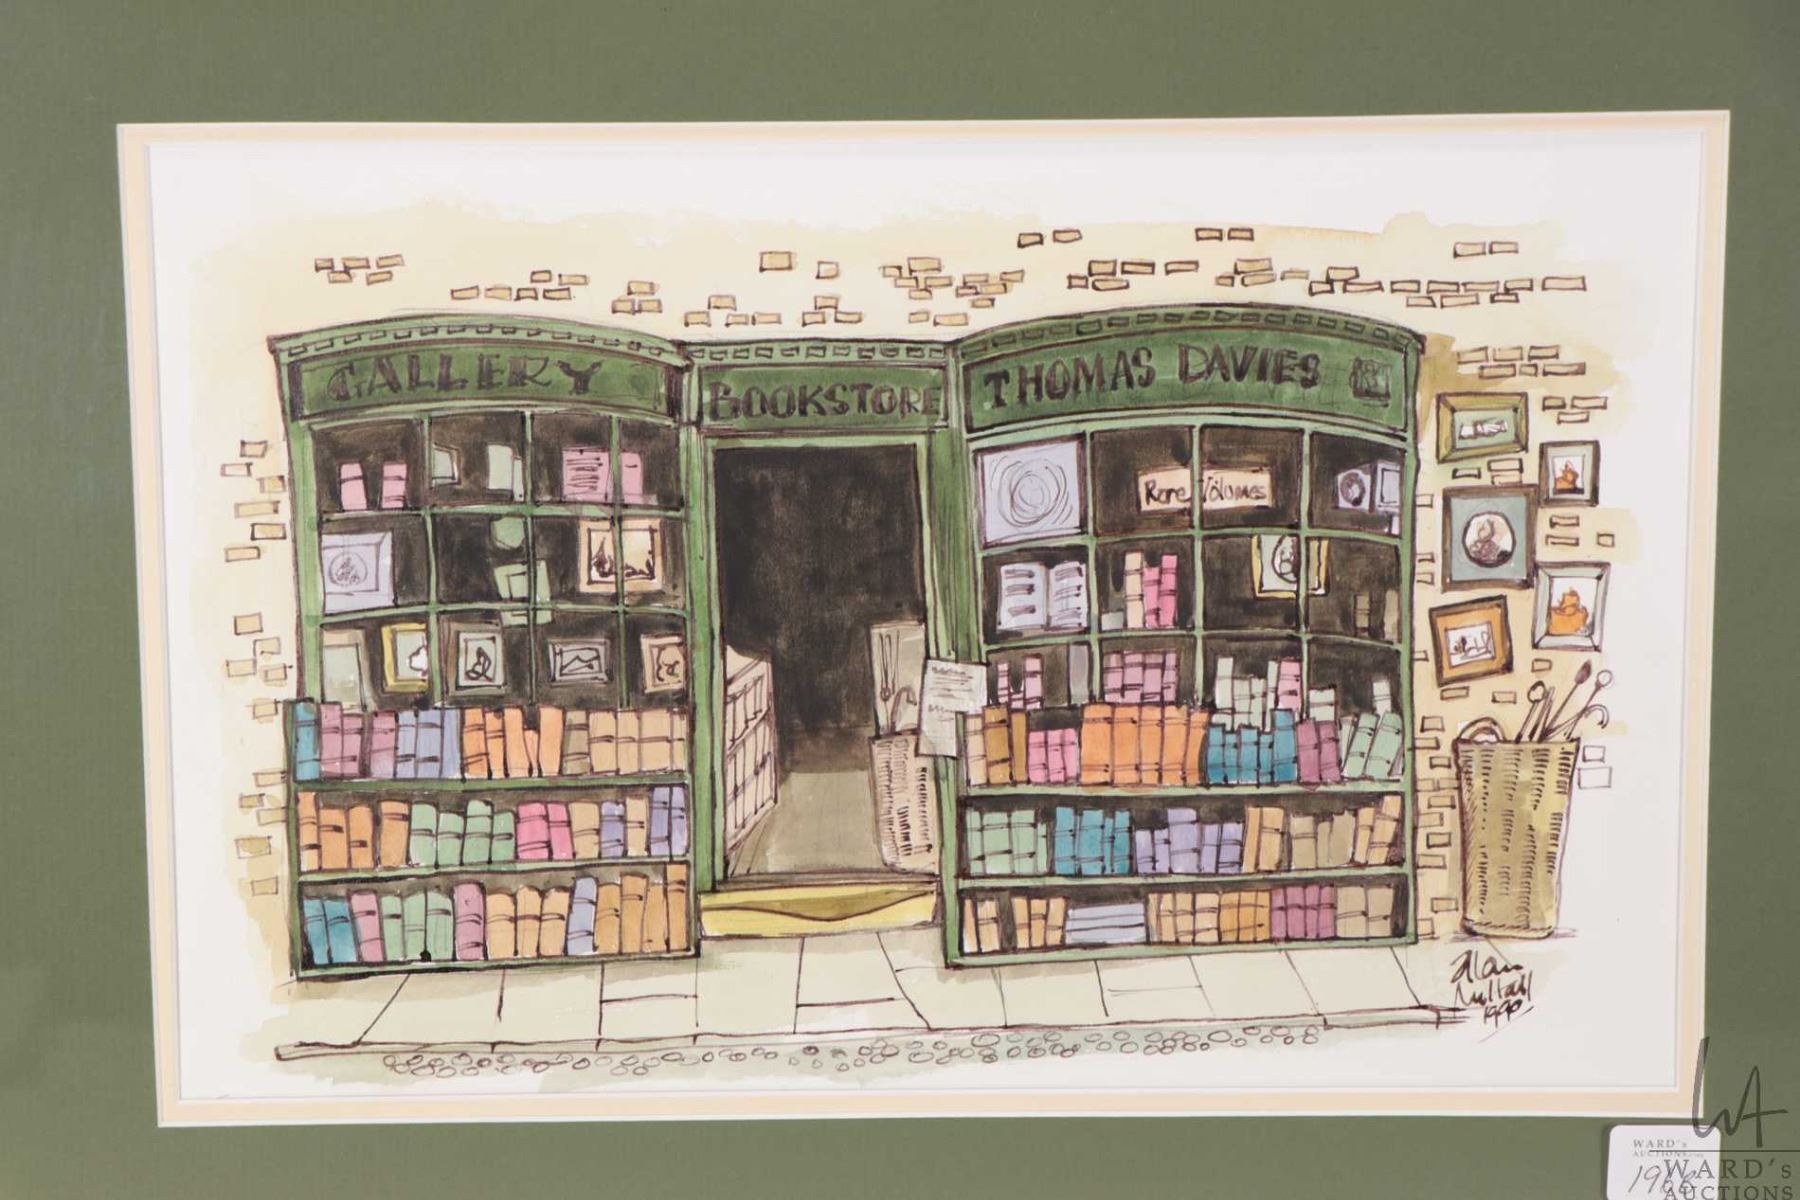 GALLERY
BOOKSTORE
THOMAS DAVIES
Rare Volumes
Alan
Nuttall
1990
WARD's
AUCTIONS
WARD's
AUCTIONS